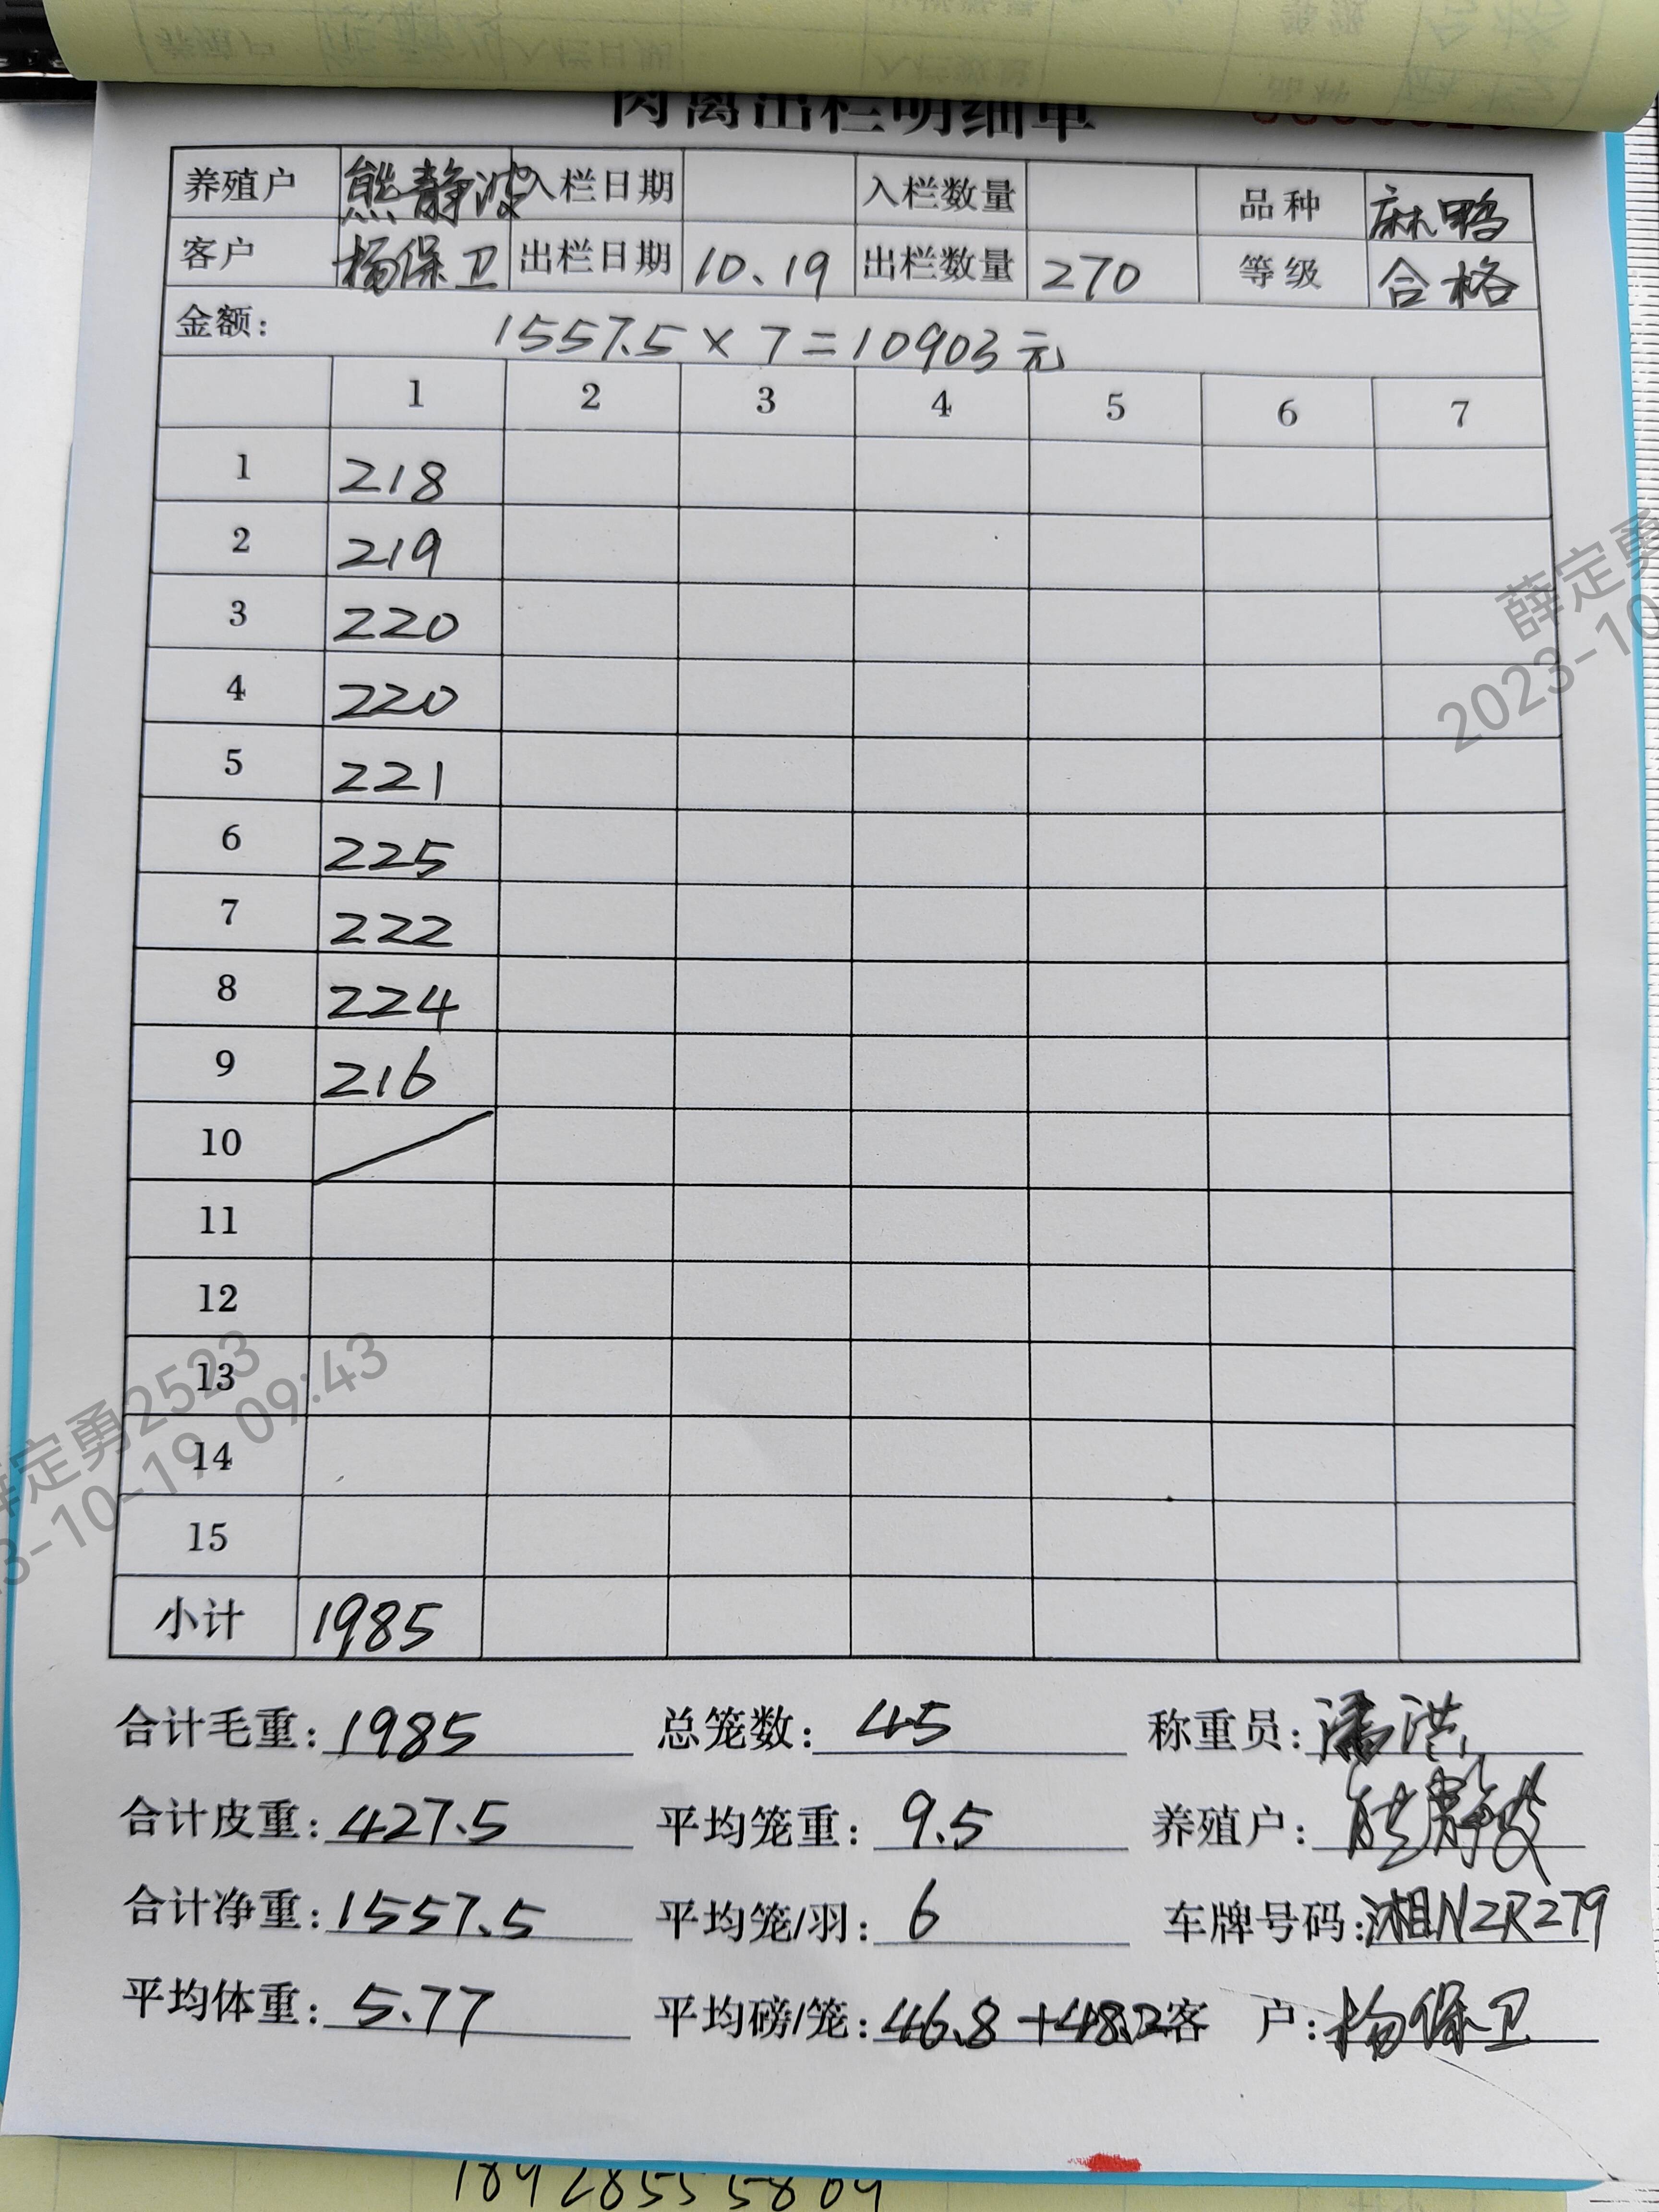 肉禽出栏明细单
养殖户 熊静波 入栏日期 入栏数量 品种 麻鸭
客户 杨保卫 出栏日期 10、19 出栏数量 270 等级 合格
金额: 1557.5×7=10903元
1 2 3 4 5 6 7
1 218
2 219
3 220
4 220
5 221
6 225
7 222
8 224
9 216
10
11
12
13
14
15
小计 1985
合计毛重: 1985 总笼数: 45 称重员: 潘洪
合计皮重: 427.5 平均笼重: 9.5 养殖户: 熊静波
合计净重: 1557.5 平均笼/羽: 6 车牌号码: 湘NZR279
平均体重: 5.77 平均磅/笼: 46.8+48.2 客户: 杨保卫
薛定勇
2023-10
薛定勇2523
3-10-19 09:43